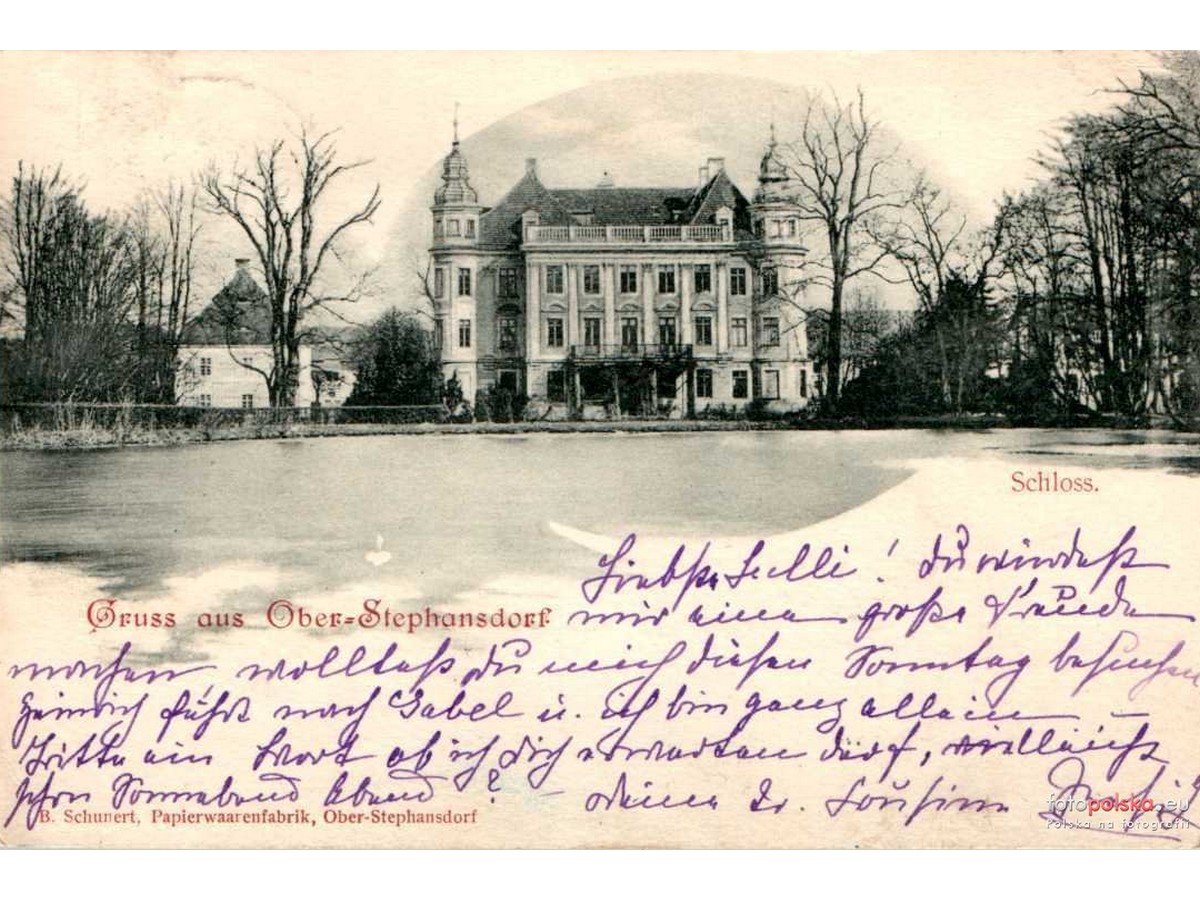 Schloss.
Gruss aus Ober=Stephansdorf
Liebste Lulli! Du würdest
mir eine große Freude
machen wolltest Du mich diesen Sonntag besuchen
Heinrich fährt nach Gabel u. ich bin ganz allein –
Bitte ein Wort ob ich Dich erwarten darf, vielleicht
schon Sonnabend Abend? – Deine Cousine
B. Schunert, Papierwaarenfabrik, Ober-Stephansdorf
fotopolska.eu
Polska na fotografii